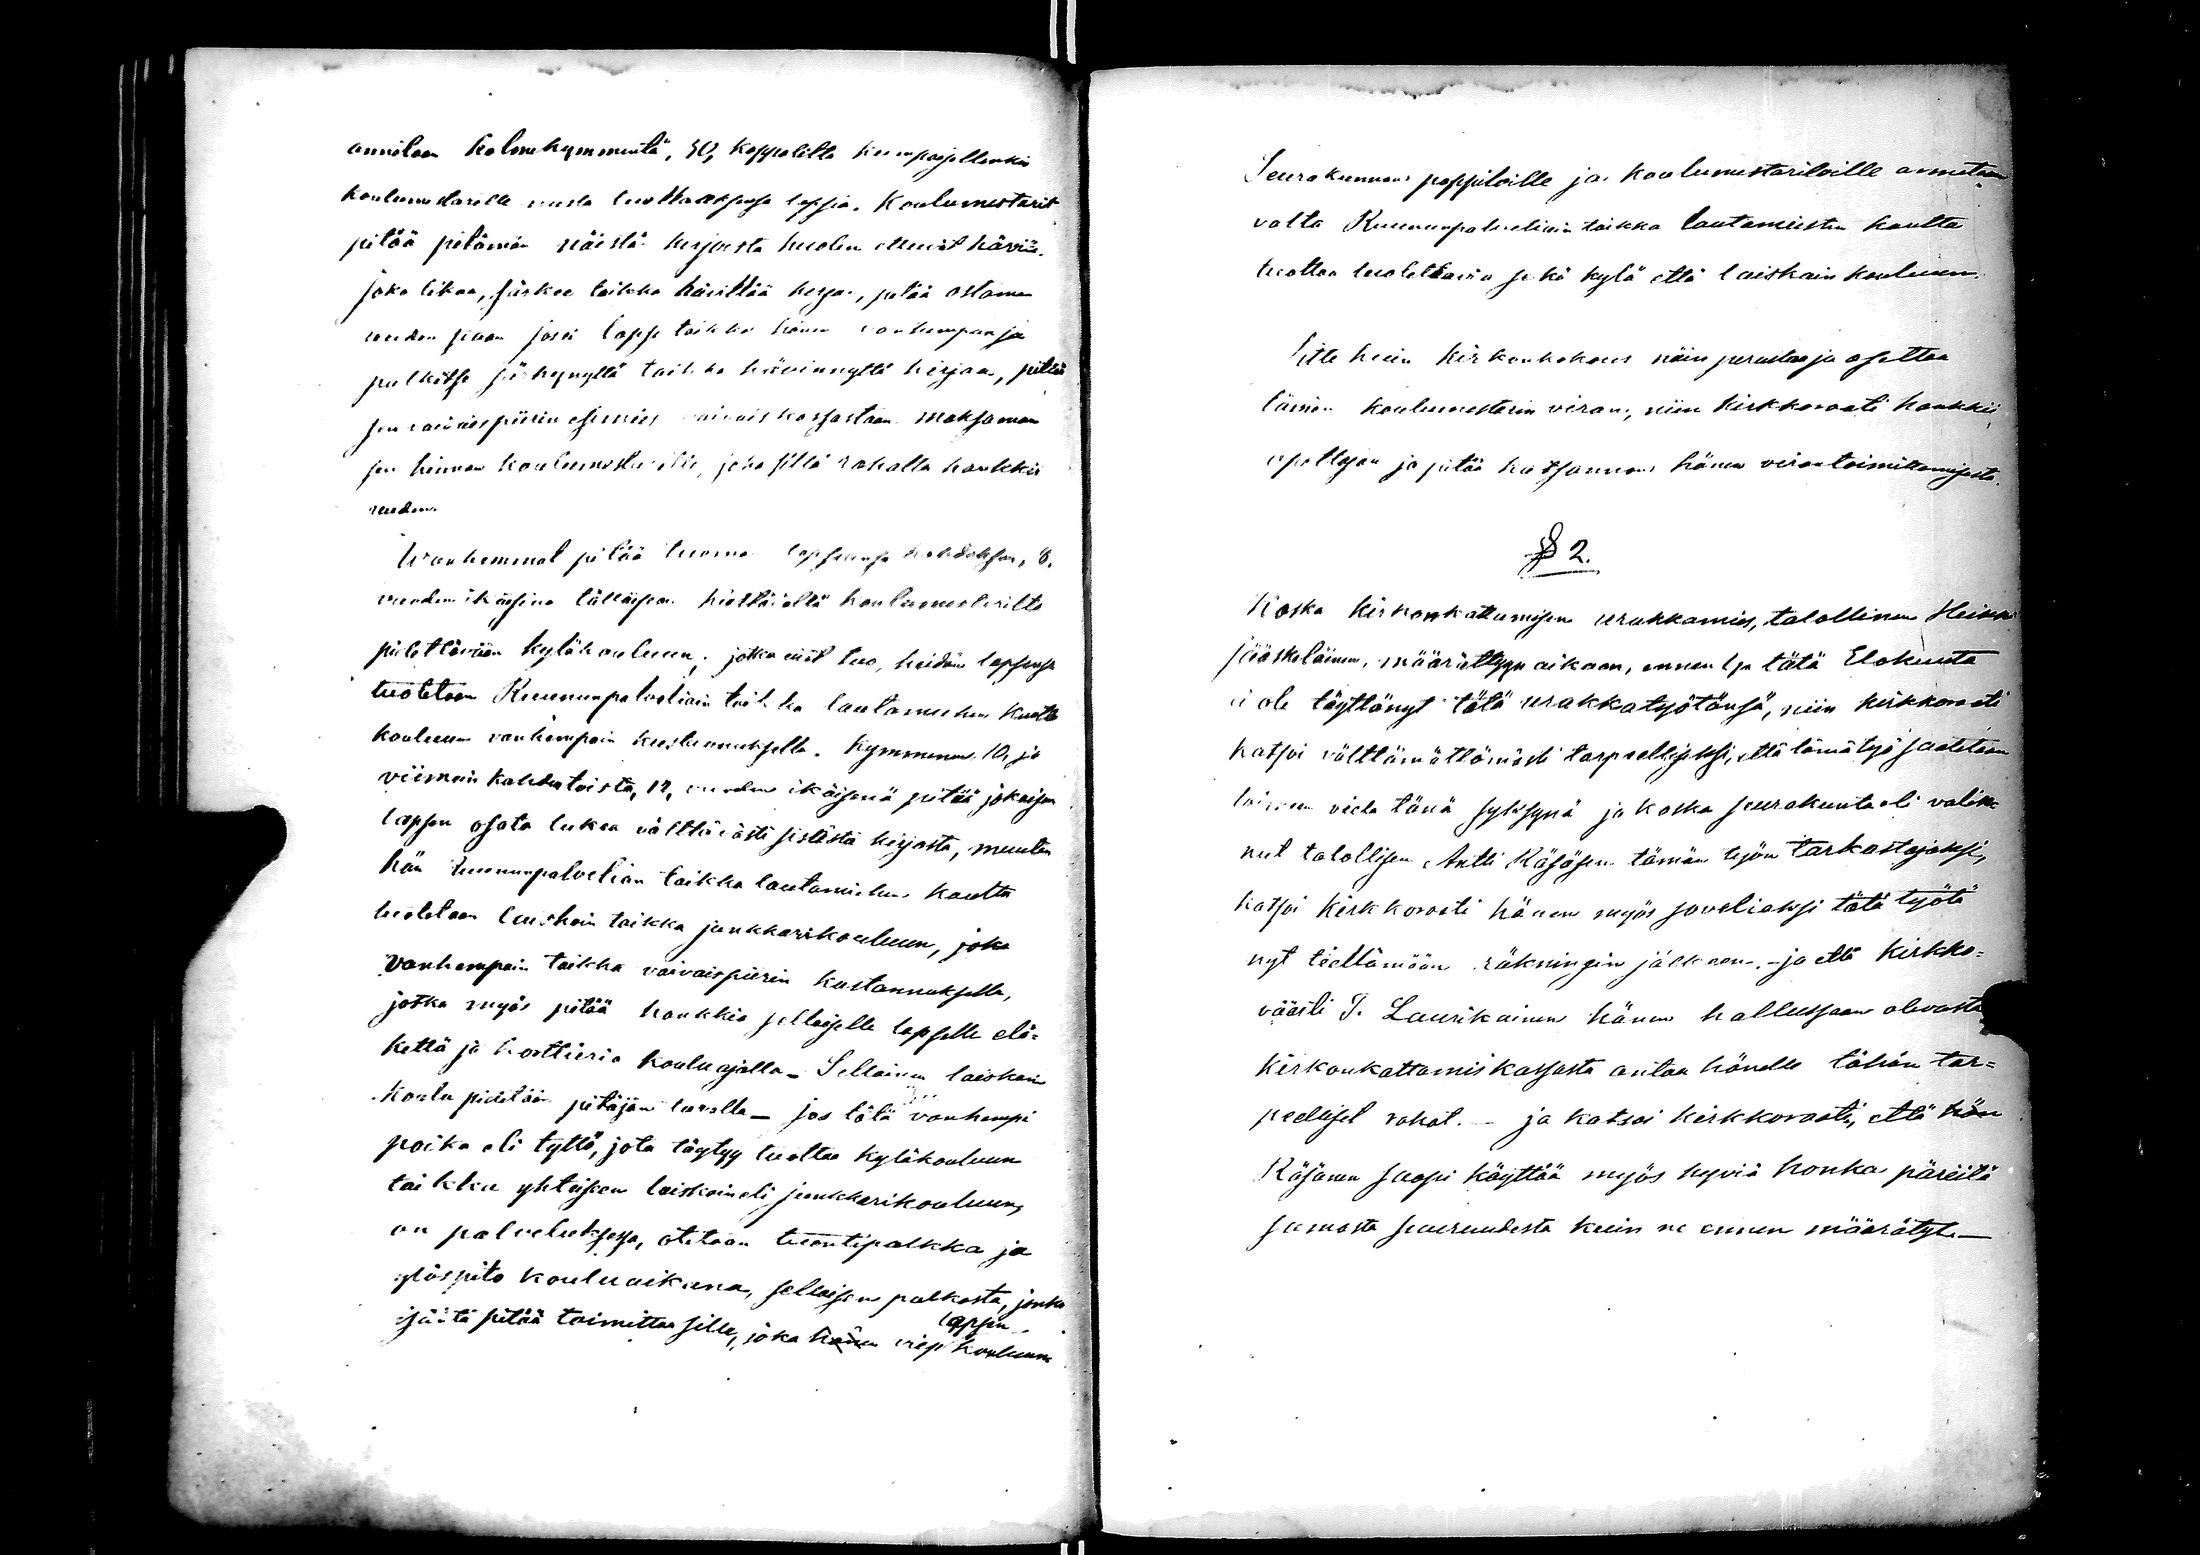 annetaan kolmekymmentä, 30, kappaletta kumpaisellenkin
koulumestarille lapsia. Koulumestarit
pitää pitämän näistä kirjoista huolen etteivät häviä.
Joka likaa, särkee taikka hävittää kirjan, pitää ostaman
uuden sijaan jossei lapsi taikka hänen vanhempansa
palkitse särkynyttä taikka hävinnyttä kirjaa, pitää
sen vaivaispiirin esimies vaivaiskassastaan maksaman
sen hinnan koulumestarille, joka sillä rahalla hankkii
uuden.
Wanhemmat pitää tuoma lapsensa kahdeksan, 8,
vuoden ikäisinä tällaiseen koulumestarilta
pidettävään kyläkouluun; jotka eivät tuo, heidän lapsensa
tuotetaan Kruununpalvelian taikka lautamiehen kautta
kouluun vanhempain kustannuksella. Kymmenen, 10, ja
viimein kahdentoista, 12, vuoden ikäisenä pitää jokaisen
lapsen osata lukea välttävästi sisästä kirjasta, muuten
hän kruununpalvelian taikka lautamiehen kautta
tuotetaan laiskain taikka junkkarikouluun, joko
vanhempain taikka vaivaispiirin kustannuksella,
jotka myös pitää hankkia sellaiselle lapselle elä=
kettä ja kortteria kouluajalla. Sellainen laiskain
koulu pidetään pitäjän tuvalla – jos tätä vanhempi
poika eli tyttö, jota täytyy tuottaa kyläkouluun
taikka yhteiseen laiskain eli junkkarikouluun,
on palveluksessa, otetaan tuontipalkka ja
ylöspito kouluaikana, sellaisen palkasta, jonka
isäntä pitää toimittaa sille, joka hänen lapsen viep kouluun
Seurakunnan pappiloille ja koulumestariloille annetaan
valta Kruununpalveliain taikka lautamiesten kautta
tuottaa tuotettavia sekä kylä että laiskain kouluun.
Sitte kuin kirkonkokous näin perustaa ja asettaa
tämän koulumestarin viran, niin kirkkoraati hankkii
opettajan ja pitää katsannon hänen virantoimittamisesta.
§ 2.
Koska kirkonkattamisen urakkamies, talollinen Heikki
Jääskeläinen, määrättyyn aikaan, ennen 1 p tätä Elokuuta
ei ole täyttänyt tätä urakkatyötänsä, niin kirkkoraati
katsoi välttämättömästi tarpeelliseksi, että tämä työ saatetaan
toimeen vielä tänä syksynä ja koska seurakunta oli valin=
nut talollisen Antti Räsäsen tämän työn tarkastajaksi,
katsoi Kirkkoraati hänen myös soveliaksi tätä työtä
nyt täyttämään räkningin jälkeen. – ja että Kirkko=
väärti P. Laurikainen hänen hallussaan olevasta
kirkonkattamiskassasta antaa hänelle tähän tar=
peelliset rahat. – ja katsoi kirkkoraati, että hän
Räsänen saapi käyttää myös hyviä honka päreitä
samasta suuruudesta kuin ne ennen määrätyt. –